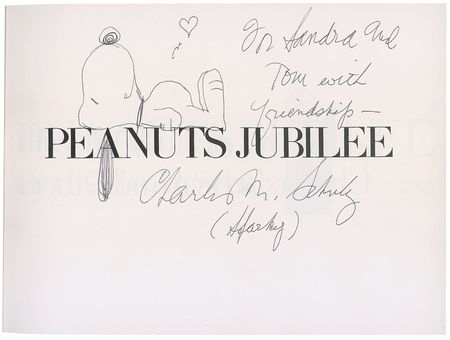 For Sandra and
Tom with
friendship—
PEANUTS JUBILEE
Charles M. Schulz
(Sparky)